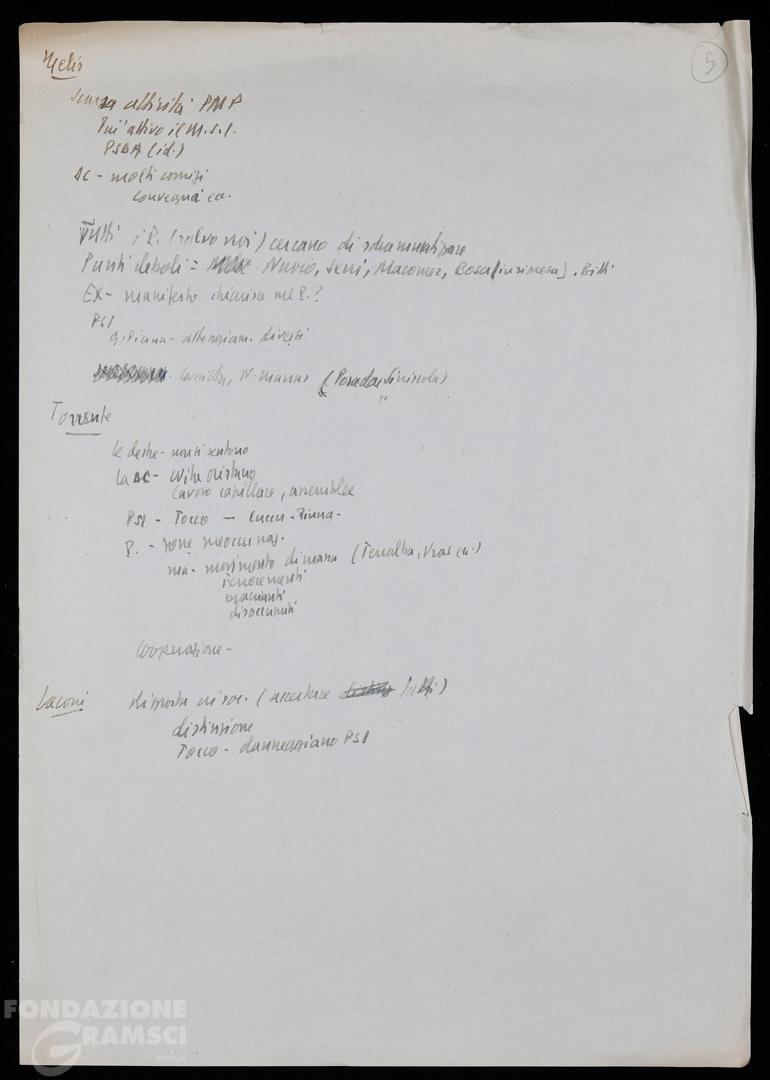 5
Melis
scarsa attività PMP
Più attivo il M.S.I.
PSDA (id.)
DC - molti comizi
convegni ecc.
Tutti i P. (salvo noi) cercano di sdrammatizzare
Punti deboli = Nuoro, Macomer, Bosa, Bitti
EX - manifesto chiarire nel P.?
PSI
G. Pinna - atteggiam. diversi
(Posada, Siniscola)
Torrente
le destre - non si sentono
la DC - evita Oristano
lavoro capillare, assemblee
PSI - Tocco - Cuccu - Pinna -
P. - zone
ma - movimento di massa (Terralba, Uras ecc.)
braccianti
disoccupati
Cooperazione -
Laconi
risposta (accettare tutti)
distinzione
Tocco - danneggiano PSI
FONDAZIONE
GRAMSCI
onlus